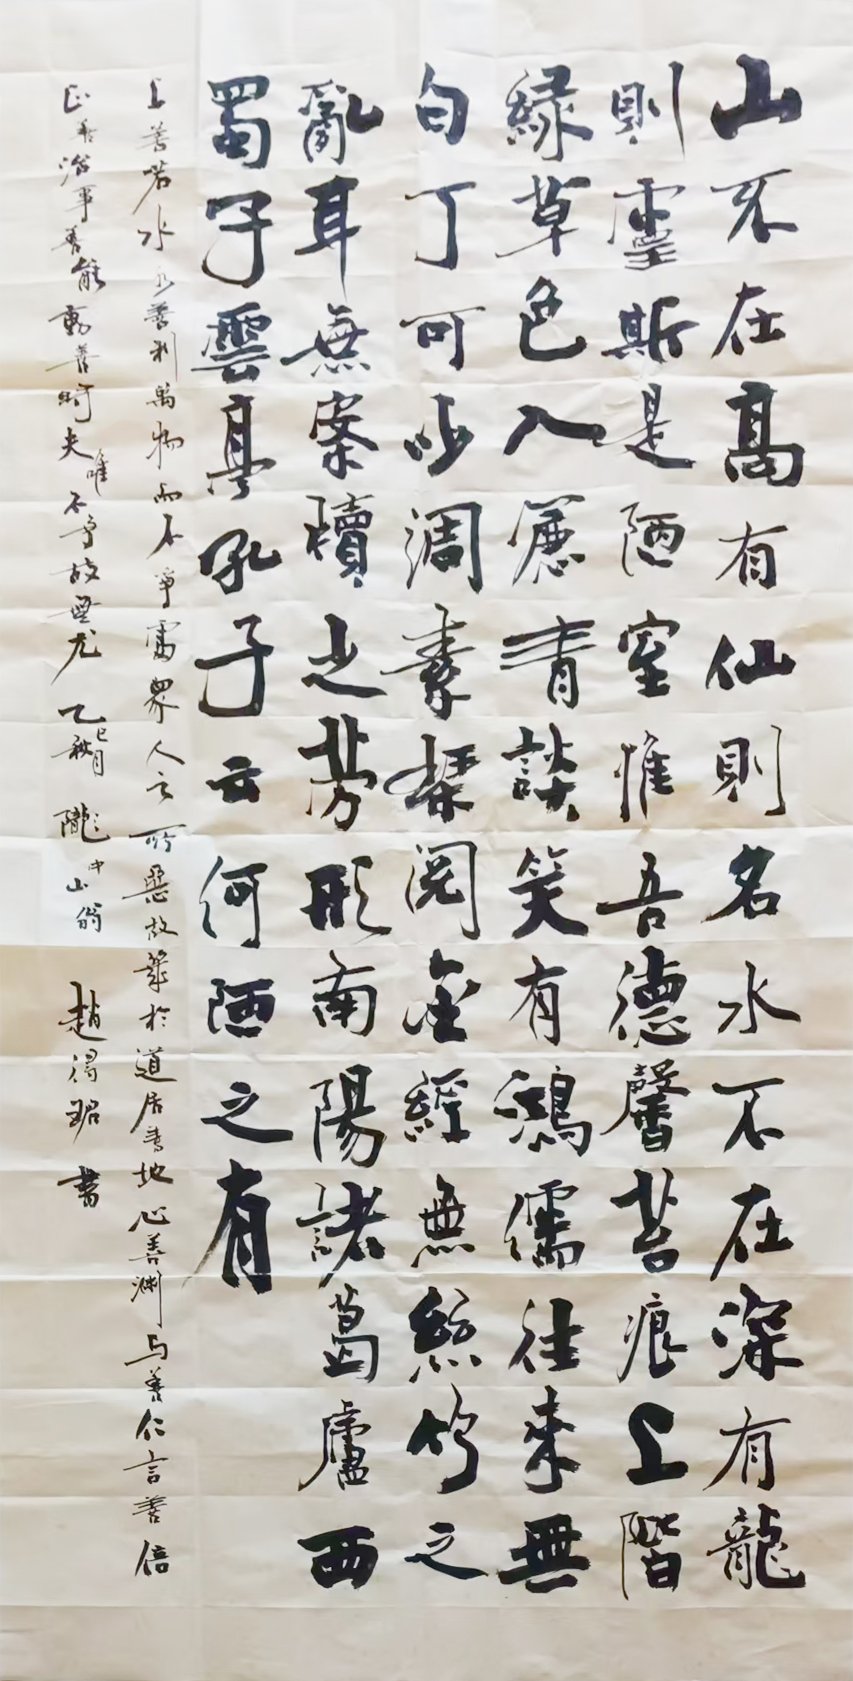 山不在高有仙則名水不在深有龍
則靈斯是陋室惟吾德馨苔痕上階
綠草色入簾青談笑有鴻儒往來無
白丁可以調素琴閱金經無絲竹之
亂耳無案牘之勞形南陽諸葛廬西
蜀子雲亭孔子云何陋之有
上善若水水善利萬物而不爭處眾人之所惡故幾於道居善地心善淵與善仁言善信
正善治事善能動善時夫唯不爭故無尤乙巳秋月隴中山翁趙得珺書